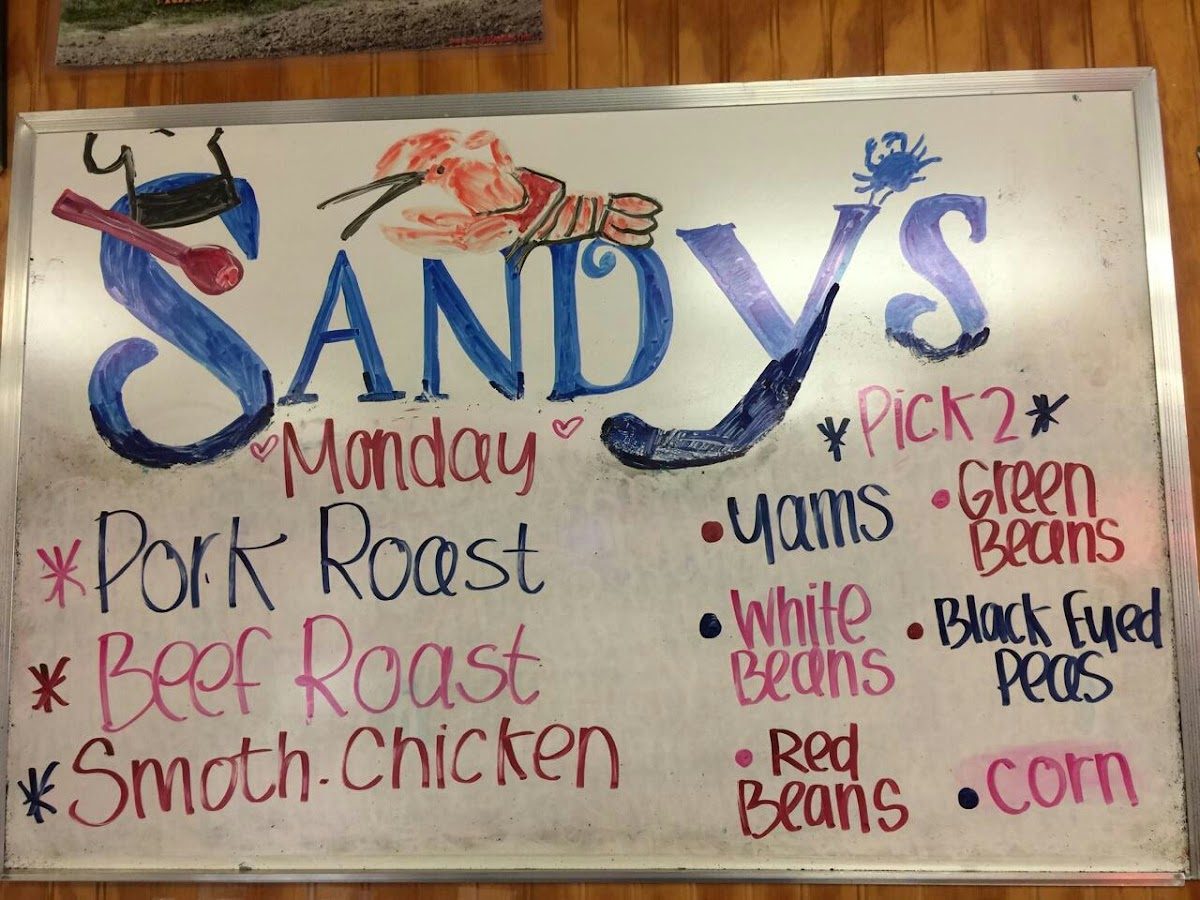 SANDY'S
Monday
* Pork Roast
* Beef Roast
* Smoth. Chicken
* Pick 2 *
• Yams
• White
Beans
• Red
Beans
• Green
Beans
• Black Eyed
Peas
• Corn